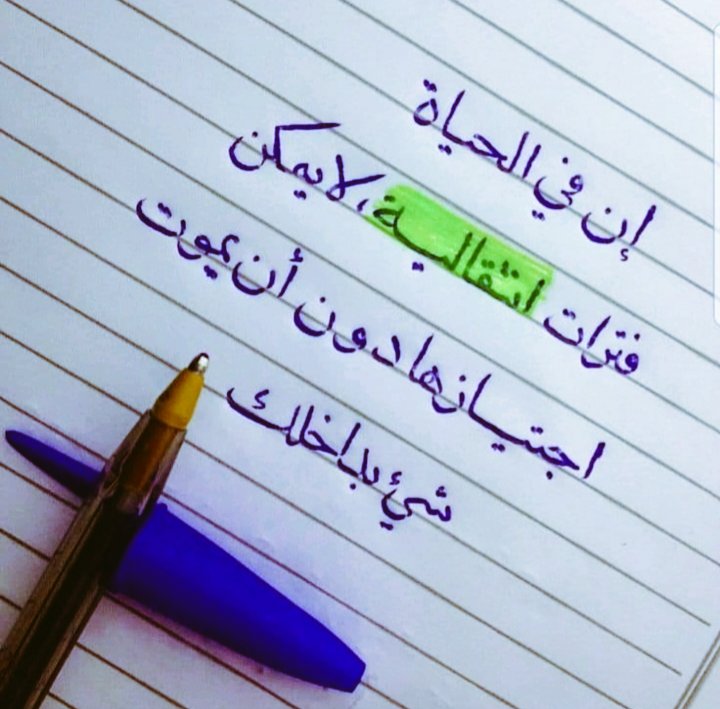 إن في الحياة
فترات انتقالية، لا يمكن
اجتيازها دون أن يموت
شئ بداخلك